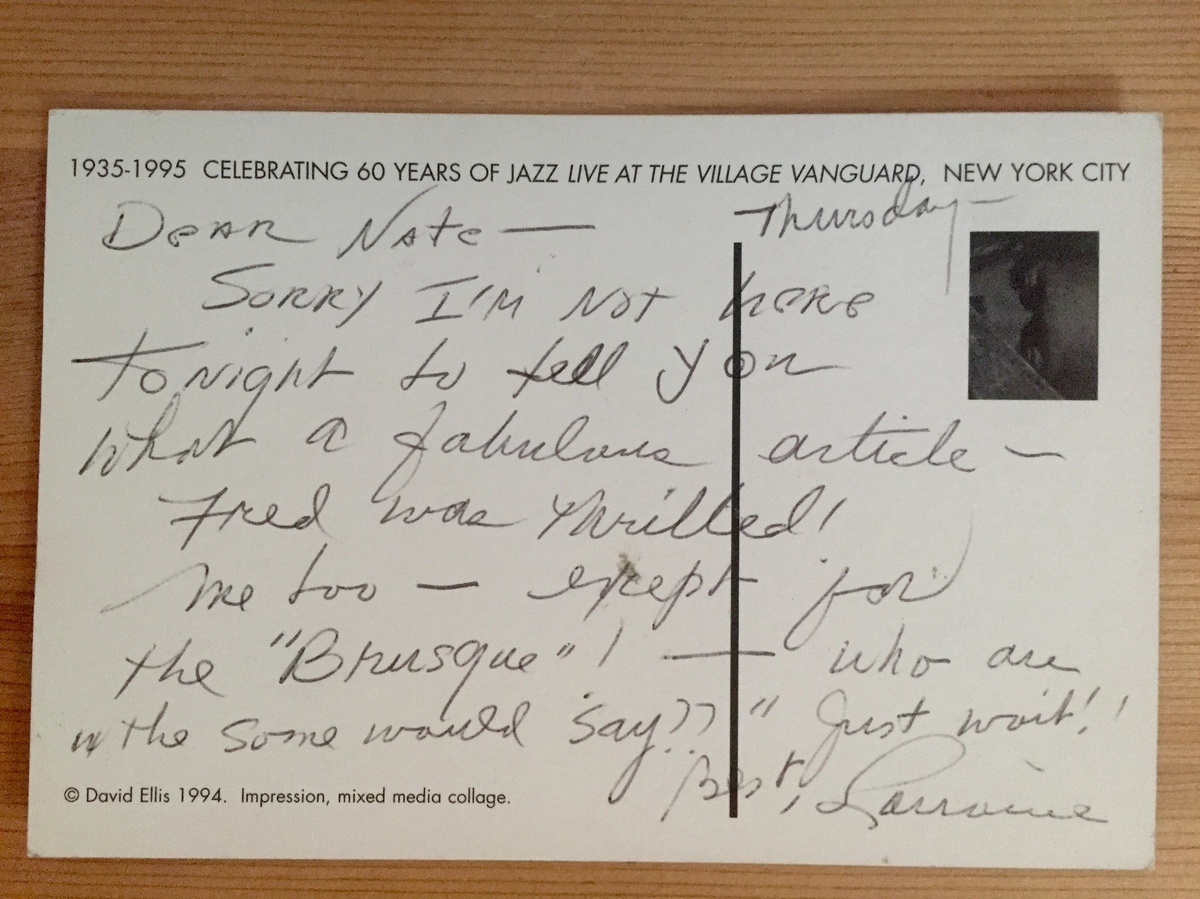 1935-1995 CELEBRATING 60 YEARS OF JAZZ LIVE AT THE VILLAGE VANGUARD, NEW YORK CITY
Thursday—
Dear Nate —
Sorry I'm not here
tonight to tell you
what a fabulous article —
Fred was thrilled!
me too — except for
the "Brusque"! — who are
"the some would say?? " Just wait!!
Best, Lorraine
© David Ellis 1994. Impression, mixed media collage.